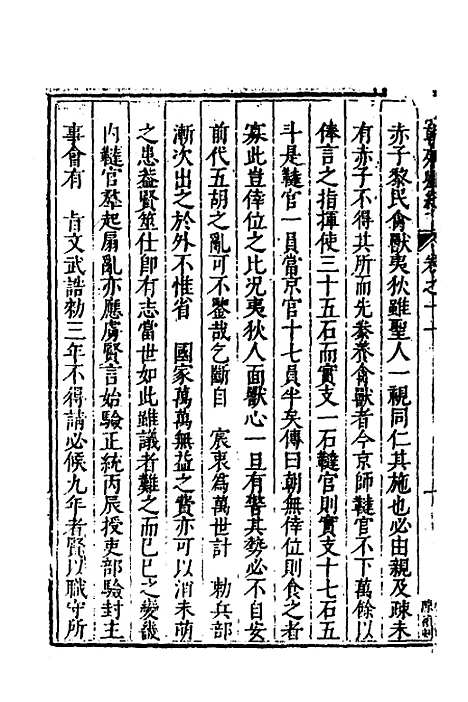 赤子黎民禽獸夷狄雖聖人一視同仁其施也必由親及疎未
有赤子不得其所而先豢養禽獸者今京師韃官不下萬餘以
俸言之指揮使三十五石而實支一石韃官則實支十七石五
斗是韃官一員當京官十七員半矣傳曰朝無倖位則食之者
寡此豈倖位之比況夷狄人面獸心一旦有警其勢必不自安
前代五胡之亂可不鑒哉乞斷自 宸衷為萬世計 勅兵部
漸次出之於外不惟省 國家萬萬無益之費亦可以消未萌
之患葢賢筮仕即有志當世如此雖議者難之而已巳之變畿
内韃官羣起扇亂亦應虜賢言始驗正統丙辰授吏部驗封主
事會有 旨文武誥勑三年不得請必候九年者賢以職守所
卷之十一